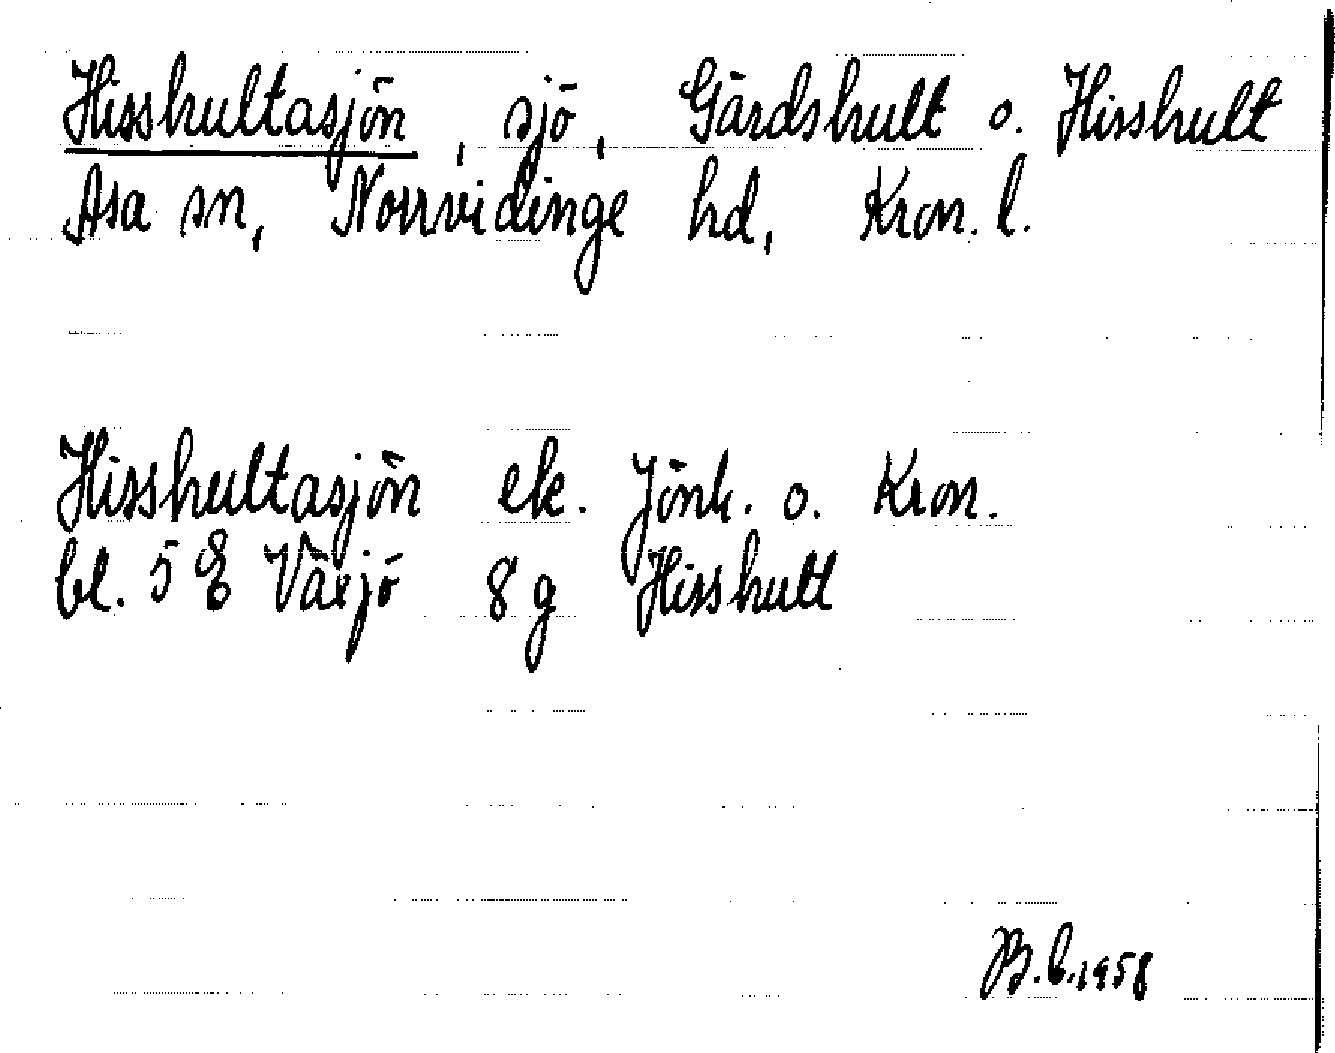 Hisshultasjön, sjö, Gårdshult o. Hisshult
Asa sn, Norrvidinge hd, Kron. l.
Hisshultasjön ek. Jönk. o. Kron.
bl. 5 E Växjö 8 g Hisshult
B.C. 1958